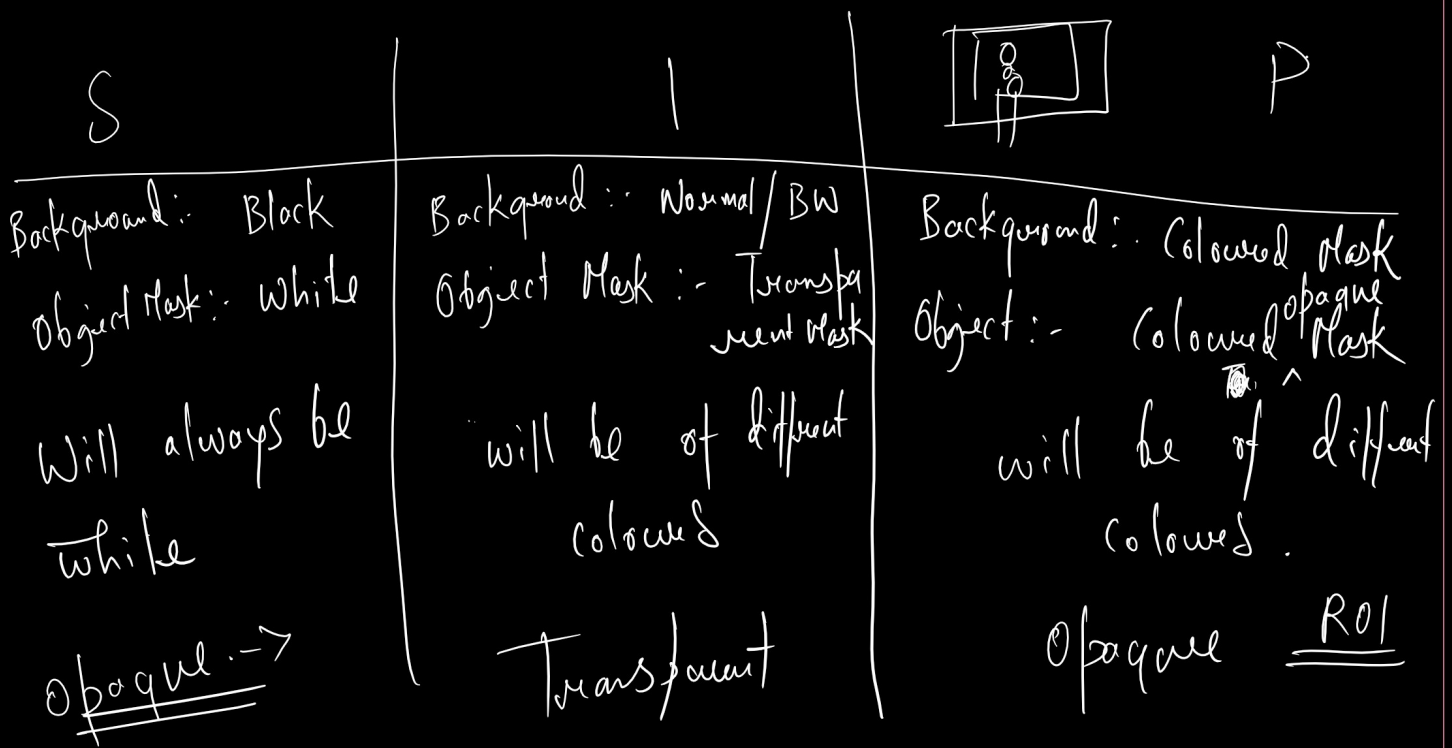 S
Background:- Black
Object Mask:- White
Will always be
white
Opaque :->
I
Background :- Normal/BW
Object Mask :- Transpa
rent Mask
will be of different
coloured
Transparent
P
Background :- Coloured Mask
Object :- Coloured opaque Mask
will be of different
coloured.
Opaque ROI